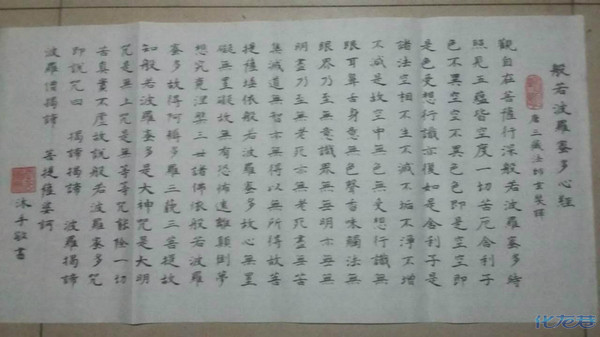 般若波羅蜜多心經
唐三藏法師玄奘譯
觀自在菩薩行深般若波羅蜜多時
照見五蘊皆空度一切苦厄舍利子
色不異空空不異色色即是空空即
是色受想行識亦復如是舍利子是
諸法空相不生不滅不垢不淨不增
不減是故空中無色無受想行識無
眼耳鼻舌身意無色聲香味觸法無
眼界乃至無意識界無無明亦無無
明盡乃至無老死亦無老死盡無苦
集滅道無智亦無得以無所得故菩
提薩埵依般若波羅蜜多故心無罣
礙無罣礙故無有恐怖遠離顛倒夢
想究竟涅槃三世諸佛依般若波羅
蜜多故得阿耨多羅三藐三菩提故
知般若波羅蜜多是大神咒是大明
咒是無上咒是無等等咒能除一切
苦真實不虛故說般若波羅蜜多咒
即說咒曰 揭諦揭諦 波羅揭諦
波羅僧揭諦 菩提薩婆訶
沐手敬書
化龙巷